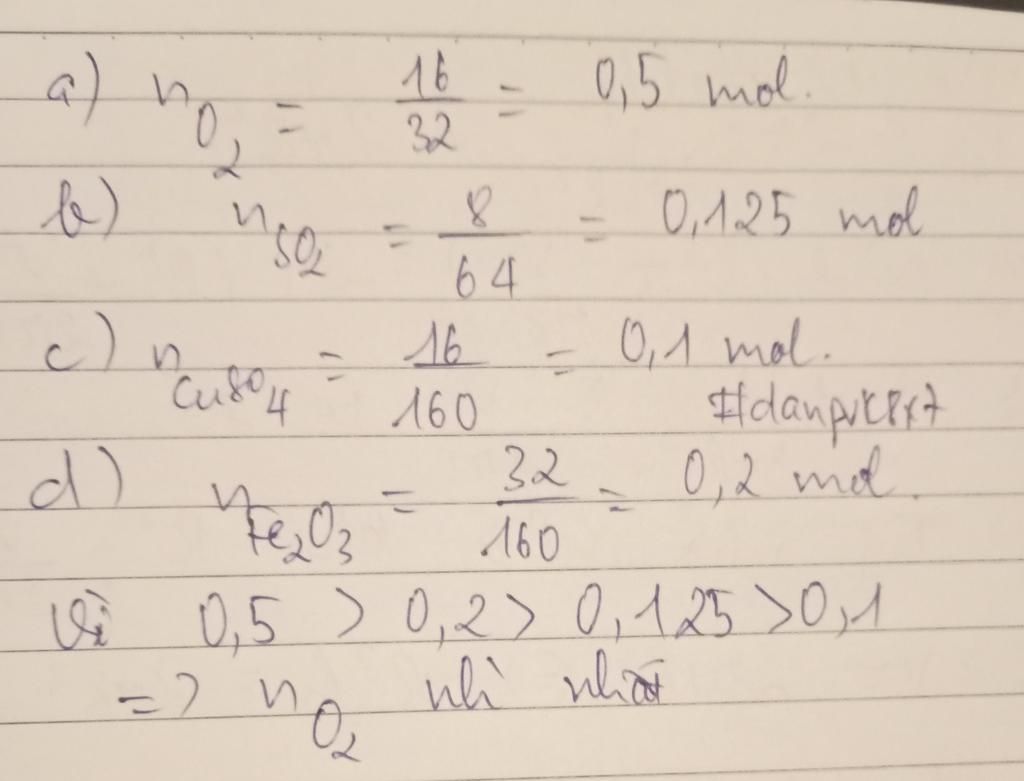 a) n O₂ = 16/32 = 0,5 mol.
b) n SO₂ = 8/64 = 0,125 mol
c) n CuSO₄ = 16/160 = 0,1 mol.
d) n Fe₂O₃ = 32/160 = 0,2 mol.
Vì 0,5 > 0,2 > 0,125 > 0,1
=> n O₂